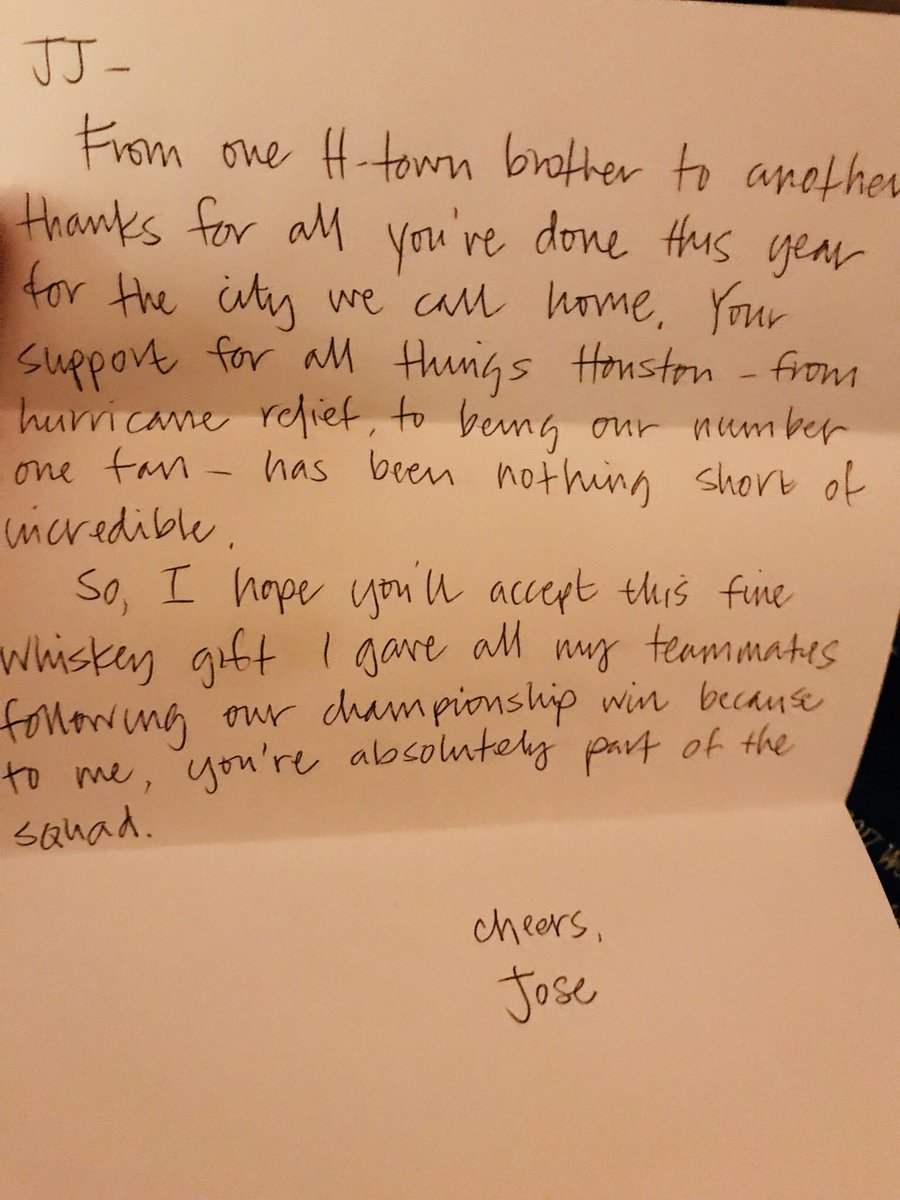 JJ -
From one H-town brother to another
thanks for all you've done this year
for the city we call home. Your
support for all things Houston - from
hurricane relief, to being our number
one fan - has been nothing short of
incredible.
So, I hope you'll accept this fine
whiskey gift I gave all my teammates
following our championship win because
to me, you're absolutely part of the
squad.
cheers,
Jose